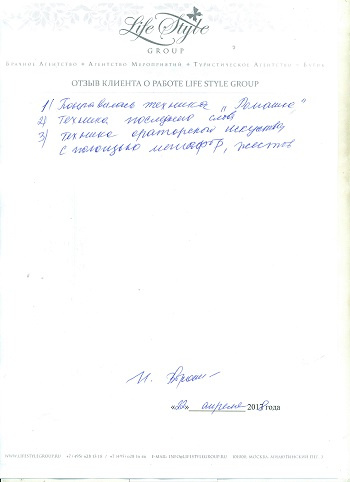 Life Style
GROUP
БРАЧНОЕ АГЕНТСТВО • АГЕНТСТВО МЕРОПРИЯТИЙ • ТУРИСТИЧЕСКОЕ АГЕНТСТВО •
ОТЗЫВ КЛИЕНТА О РАБОТЕ LIFE STYLE GROUP
1) Понравилась техника „Ромашка"
2) Техника последнего слова
3) техника ораторского искусства
с помощью метафор, жестов
«22» апреля 2013 года
WWW.LIFESTYLEGROUP.RU E-MAIL: INFO@LIFESTYLEGROUP.RU МОСКВА,